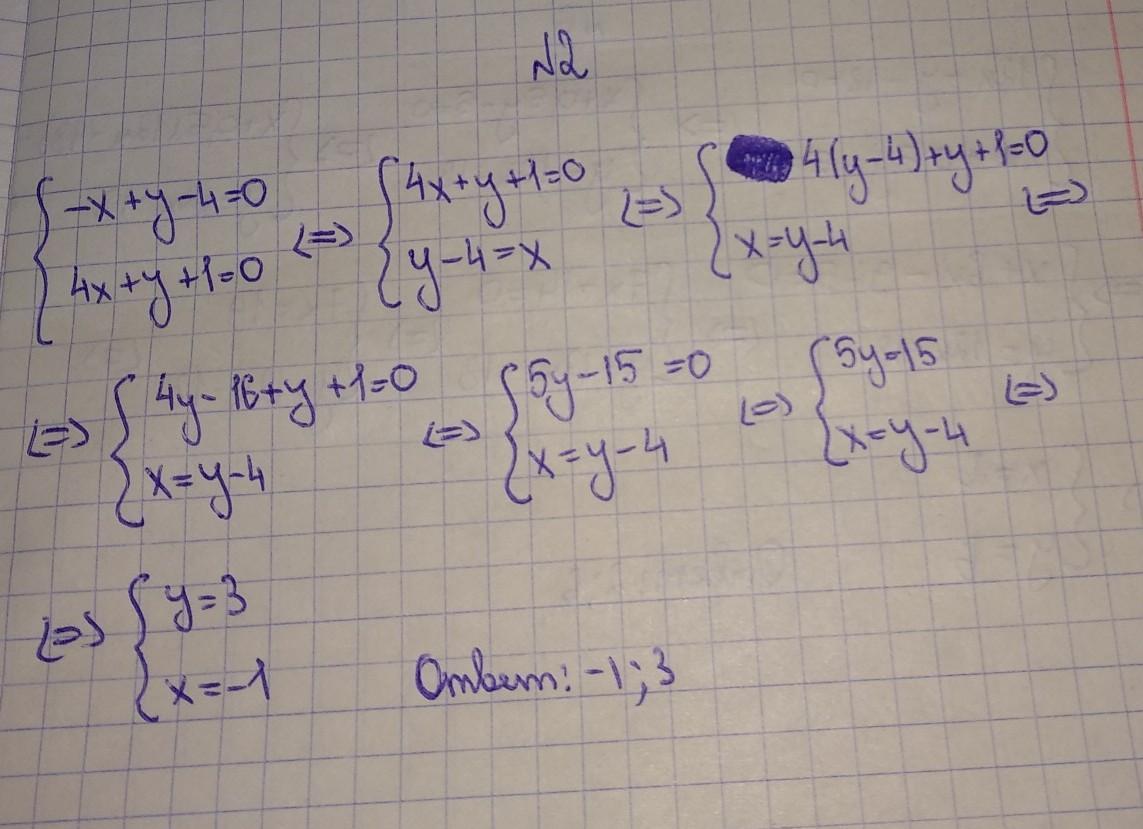 №2
{-x+y-4=0 4x+y+1=0 <=> {4x+y+1=0 y-4=x <=> {4(y-4)+y+1=0 x=y-4 <=>
<=> {4y-16+y+1=0 x=y-4 <=> {5y-15=0 x=y-4 <=> {5y=15 x=y-4 <=>
<=> {y=3 x=-1 Ответ: -1;3